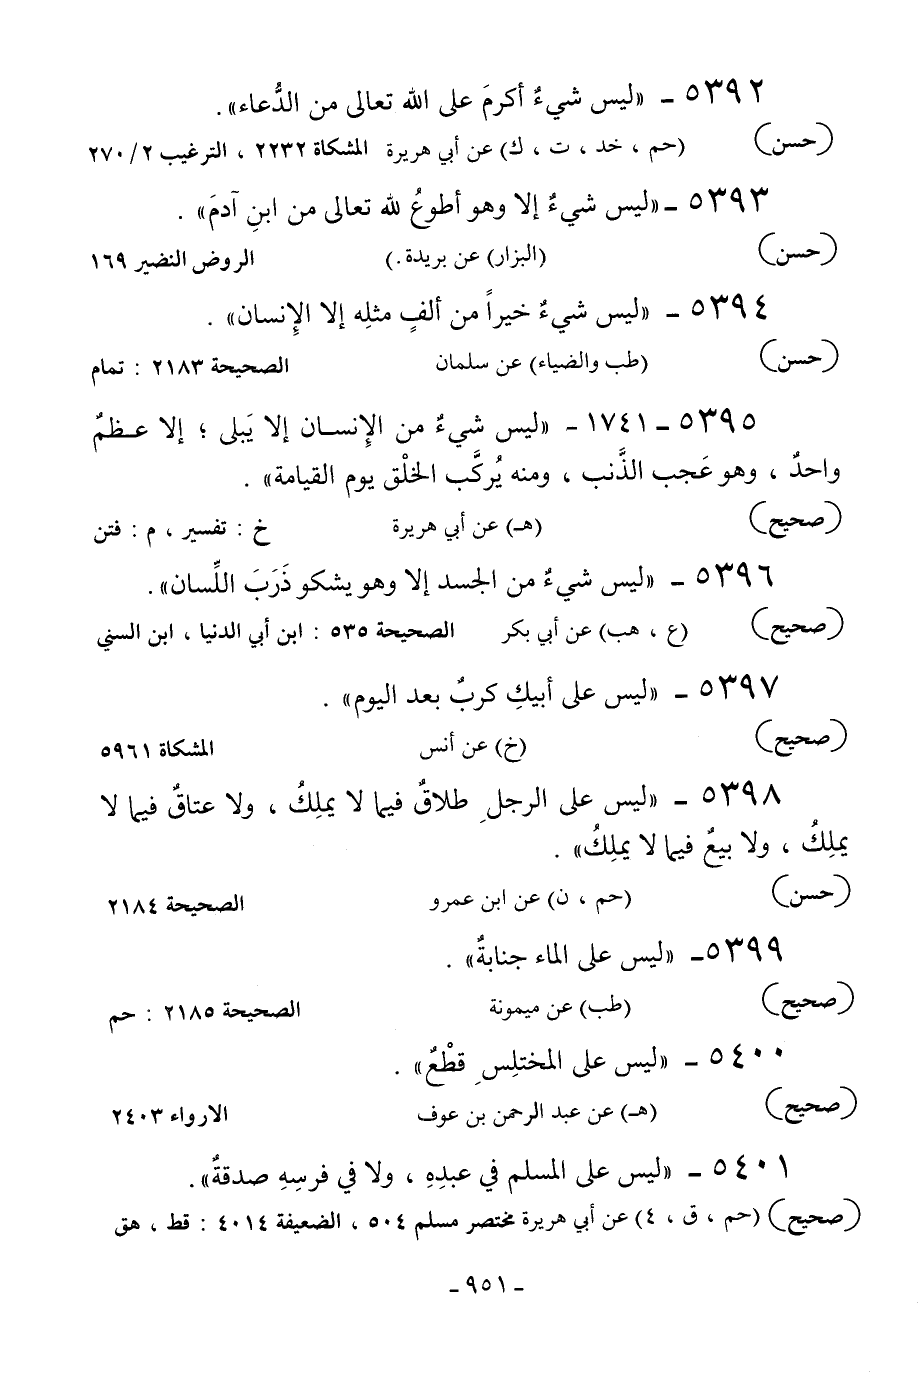 ٥٣٩٢ ـ «ليس شيءٌ أكرمَ على الله تعالى من الدُّعاء».
(حسن) (حم ، خد ، ت ، ك) عن أبي هريرة المشكاة ٢٢٣٢ ، الترغيب ٢٧٠/٢
٥٣٩٣ ـ «ليس شيءٌ إلا وهو أطوعُ لله تعالى من ابنِ آدمَ» .
(حسن) (البزار) عن بريدة.) الروض النضير ١٦٩
٥٣٩٤ ـ «ليس شيءٌ خيراً من ألفٍ مثلِه إلا الإِنسان» .
(حسن) (طب والضياء) عن سلمان الصحيحة ٢١٨٣ : تمام
٥٣٩٥ ـ ١٧٤١ ـ «ليس شيءٌ من الإِنســان إلا يَبلى ؛ إلا عـظمٌ
واحدٌ ، وهو عَجب الذَّنب ، ومنه يُركَّب الخلْق يوم القيامة» .
(صحيح) (هـ) عن أبي هريرة خ : تفسير ، م : فتن
٥٣٩٦ ـ «ليس شيءٌ من الجسد إلا وهو يشكو ذَرَبَ اللِّسان».
(صحيح) (ع ، هب) عن أبي بكر الصحيحة ٥٣٥ : ابن أبي الدنيا ، ابن السني
٥٣٩٧ ـ «ليس على أبيكِ كربٌ بعد اليوم» .
(صحيح) (خ) عن أنس المشكاة ٥٩٦١
٥٣٩٨ ـ «ليس على الرجلِ طلاقٌ فيما لا يملِكُ ، ولا عتاقٌ فيما لا
يملِكُ ، ولا بيعٌ فيما لا يملِكُ» .
(حسن) (حم ، ن) عن ابن عمرو الصحيحة ٢١٨٤
٥٣٩٩ـ «ليس على الماء جنابةٌ» .
(صحيح) (طب) عن ميمونة الصحيحة ٢١٨٥ : حم
٥٤٠٠ ـ «ليس على المختلِسِ قطْعٌ» .
(صحيح) (هـ) عن عبد الرحمن بن عوف الارواء ٢٤٠٣
٥٤٠١ ـ «ليس على المسلم في عبدِهِ ، ولا في فرسِهِ صدقةٌ».
(صحيح) (حم ، ق ، ٤) عن أبي هريرة مختصر مسلم ٥٠٤ ، الضعيفة ٤٠١٤ : قط ، هق
ـ ٩٥١ ـ